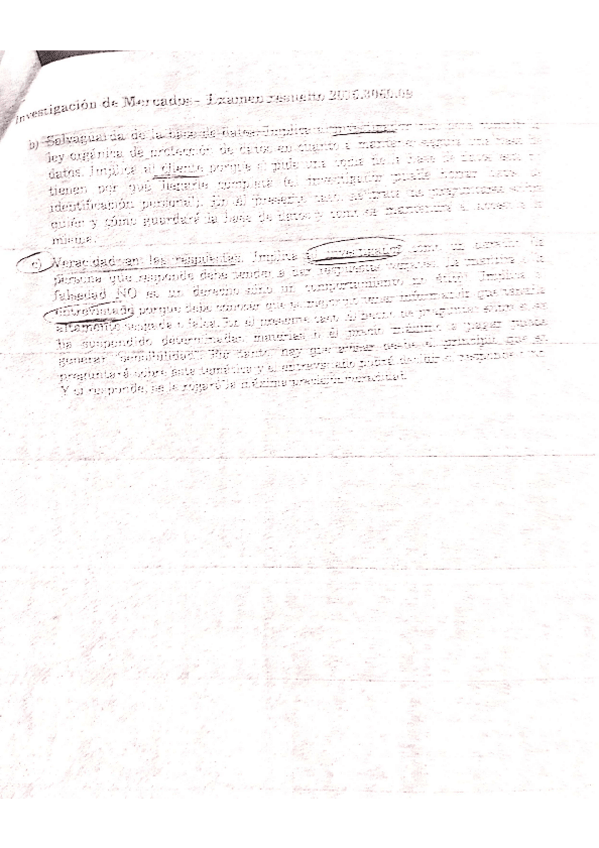 Investigación de Mercados - Examen resuelto
b) Salvaguarda de la base de datos. Implica a investigador
ley orgánica de protección de datos en cuanto a mantener segura una base de
datos. Implica al cliente porque si pide una copia de la base de datos
tienen por qué llegarle completa (el investigador puede borrar
identificación personal). En el presente caso, se trata de preguntarse sobre
quién y cómo guardará la base de datos y cómo se mantendrá el acceso a la
misma.
c) Veracidad en las respuestas. Implica como un acuerdo
persona que responde debe tender a dar respuestas
falsedad NO es un derecho sino un comportimiento no ético. Implica
entrevistado porque debe conocer que es mejor no tener información que tenerla
altamente sesgada o falsa. En el presente caso, el hecho de preguntar sobre si se
ha suspendido determinadas materias o el precio máximo a pagar puede
generar "sensibilidad". Por tanto, hay que avisar desde el principio que se
preguntará sobre esta temática y el entrevistado podrá decidir si responde o no.
Y si responde, se le rogará la máxima precisión/veracidad.